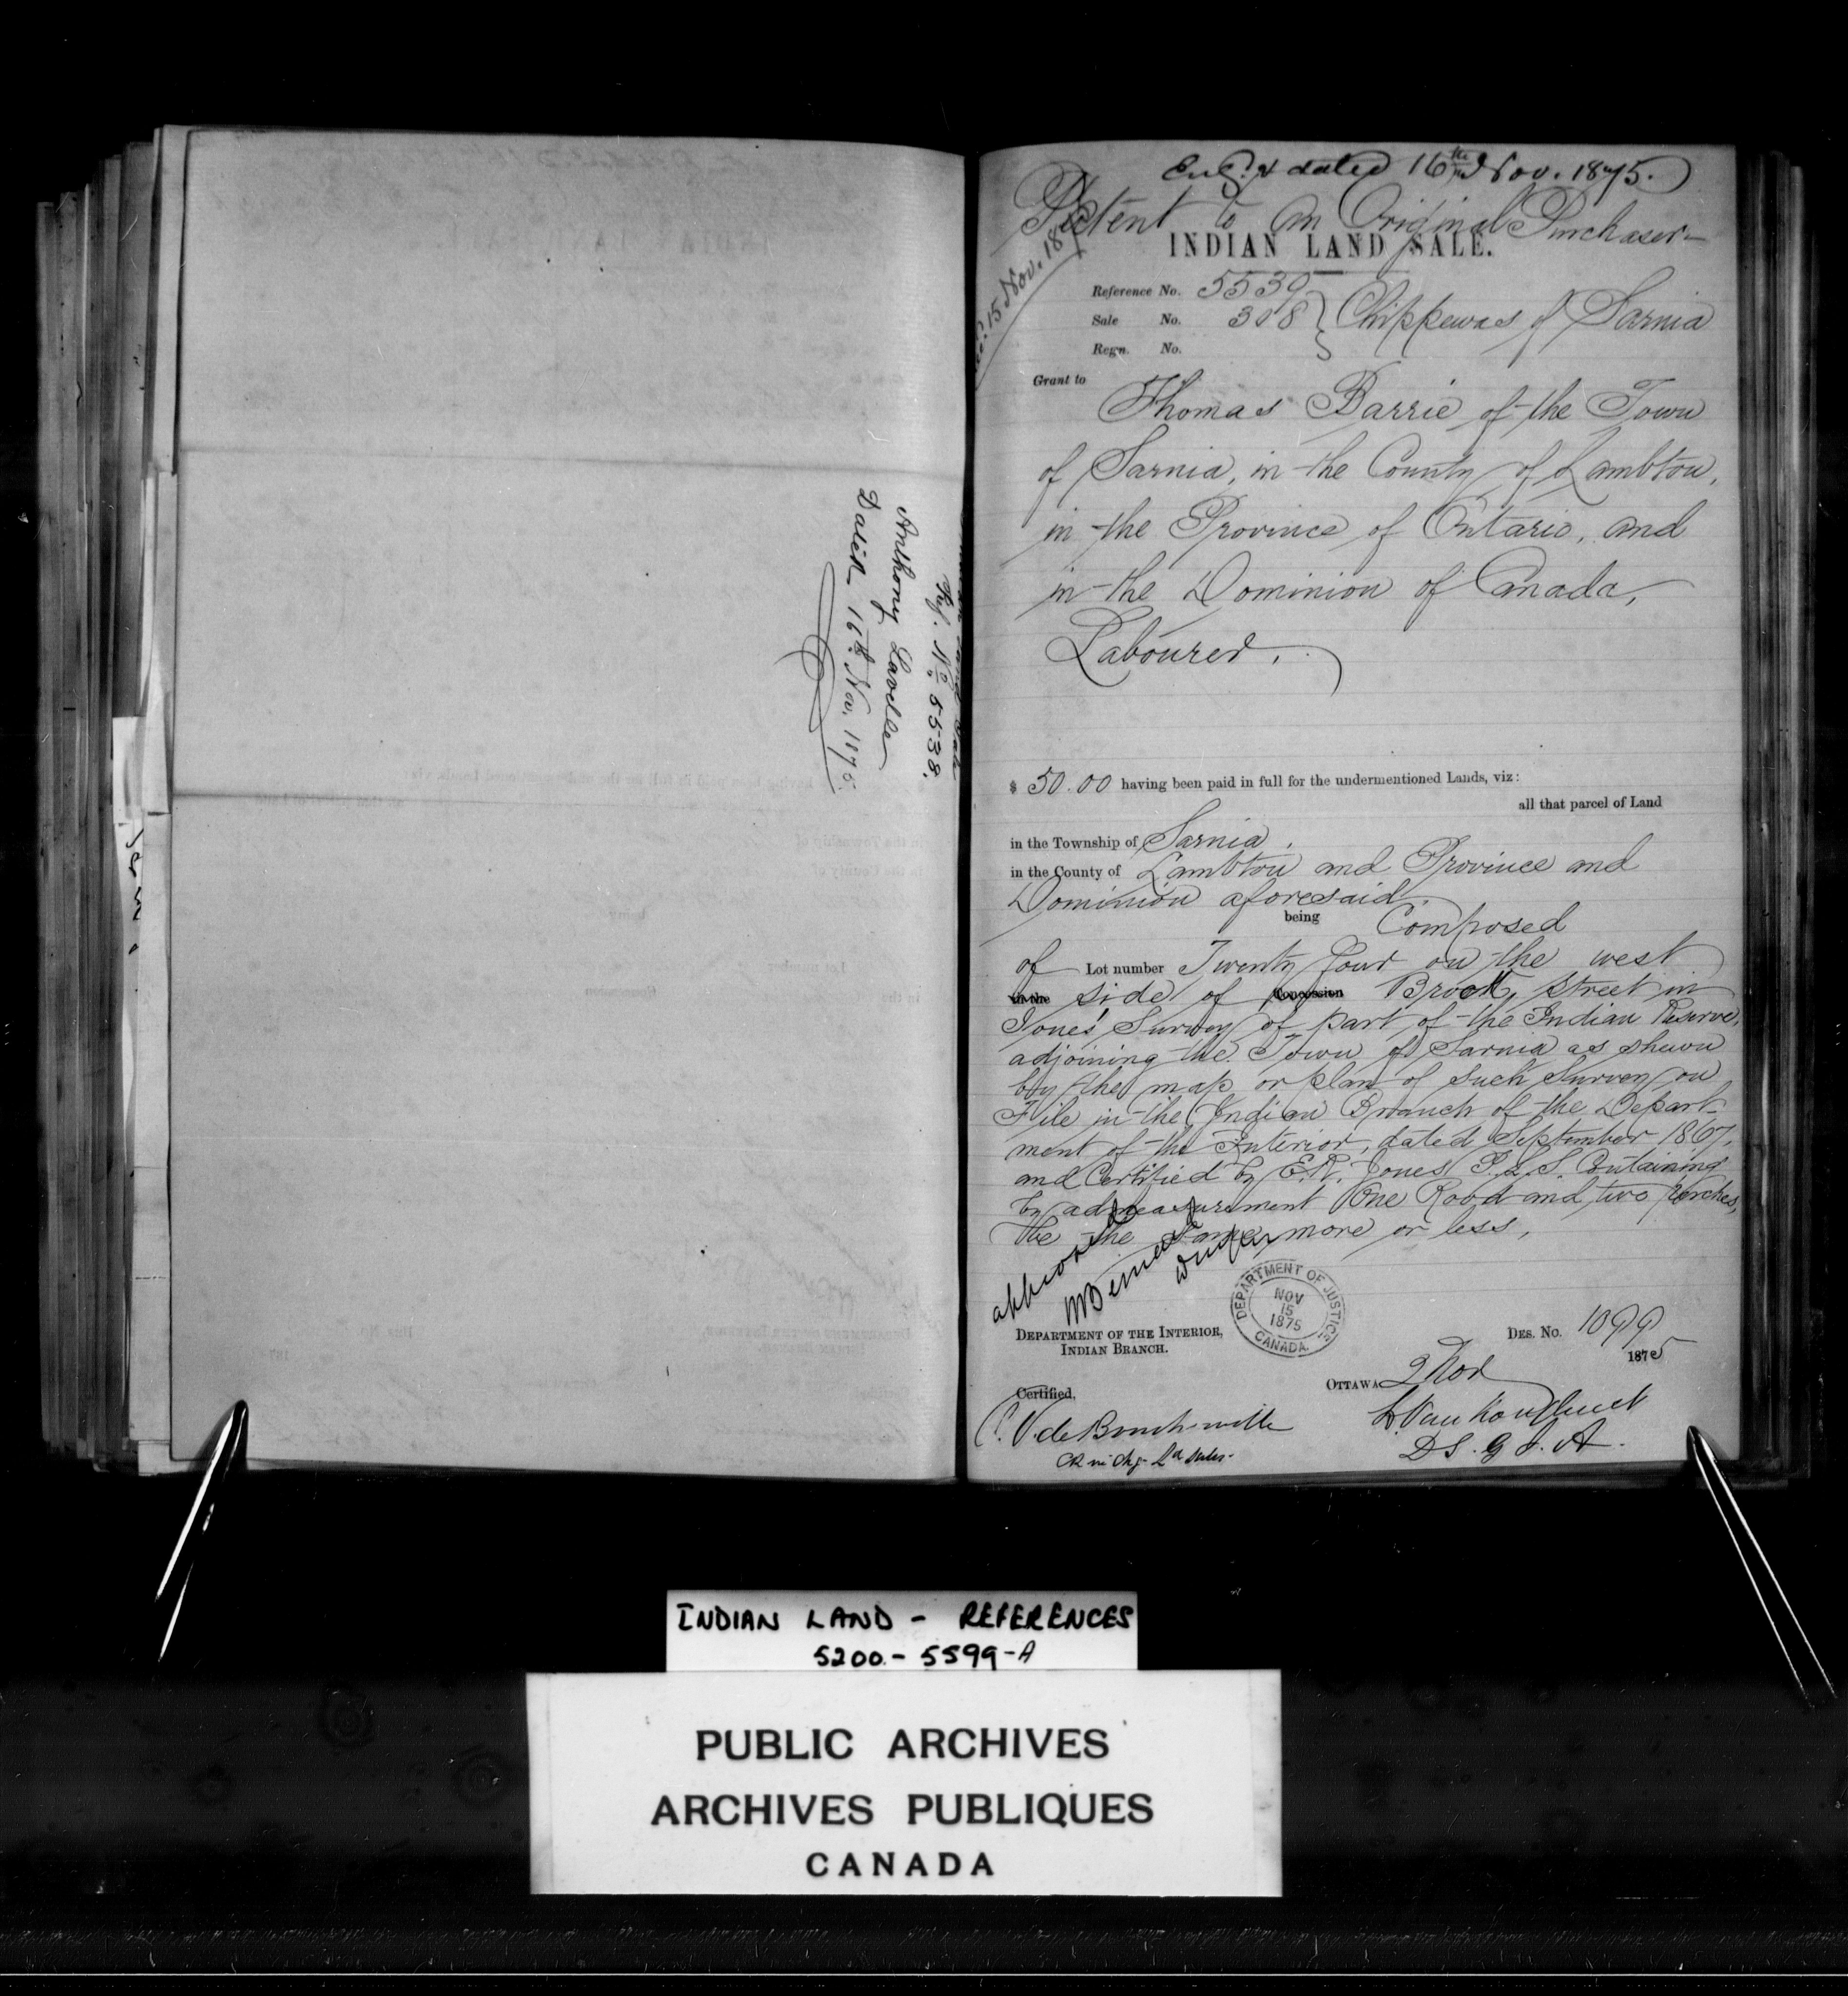 Ref. No. 5538.
Anthony Lavelle
Dated 16th Nov. 1875.
Eng.d & dated 16th Nov. 1875.
Patent to an Original Purchaser
15 Nov. 18
INDIAN LAND SALE.
Reference No. 5539
Sale No. 308 } Chippewas of Sarnia
Regn. No.
Grant to
Thomas Barrie of the Town
of Sarnia, in the County of Lambton,
in the Province of Ontario, and
in the Dominion of Canada,
Labourer.
$ 50.00 having been paid in full for the undermentioned Lands, viz:
all that parcel of Land
in the Township of Sarnia,
in the County of Lambton and Province and
Dominion aforesaid
being Composed
of Lot number Twenty four on the west
in the side of Concession Brock, street in
Jones' Survey of part of the Indian Reserve,
adjoining the Town of Sarnia as shewn
by the map or plan of such Survey on
File in the Indian Branch of the Depart-
ment of the Interior, dated September 1867.
and Certified by E.R. Jones P.L.S. Containing
by admeasurement One Rood and two perches,
be the same more or less,
approved
DEPARTMENT OF JUSTICE
NOV
15
1875
CANADA.
DEPARTMENT OF THE INTERIOR,
INDIAN BRANCH.
DES. No. 1099
1875
OTTAWA 2 Nov
Certified,
C. V. de Boucherville
L. VanKoughnet
D.S.G.I.A.
INDIAN LAND - REFERENCES
5200 - 5599-A
PUBLIC ARCHIVES
ARCHIVES PUBLIQUES
CANADA